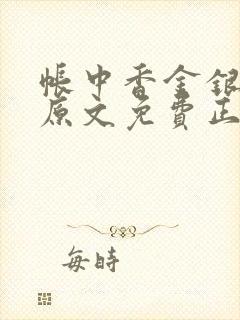 帳中香金銀
原文免費正
每時